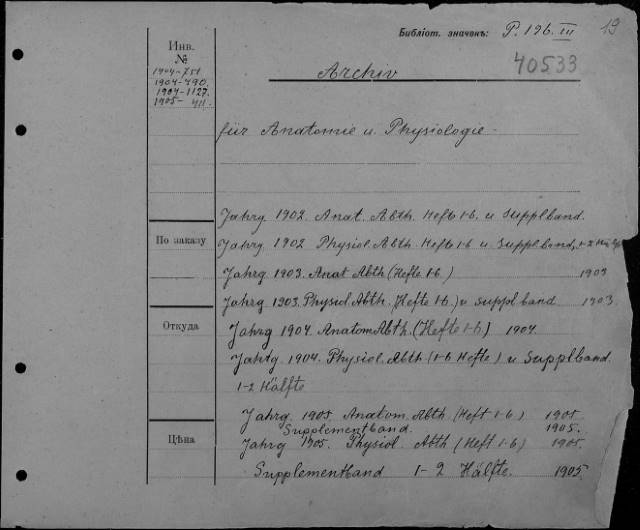 Библіот. значекъ: P. 126. III 19
Инв.
№
1904-751
1904-790.
1904-1127.
1905- 411.
40533
Archiv
für Anatomie u. Physiologie
Jahrg 1902. Anat. Abth. Hefte 1-6. u Supplband.
По заказу
Jahrg 1902 Physiol. Abth. Hefte 1-6 u Supplband, 1-2 Hälfte
Jahrg 1903. Anat Abth (Hefte 1-6) 1903
Jahrg 1903. Physiol. Abth. (Hefte 1-6) u Supplband 1903.
Откуда
Jahrg 1904. Anatom Abth. (Hefte 1-6) 1904.
Jahrg. 1904. Physiol. Abth (1-6 Hefte) u Supplband.
1-2 Hälfte
Jahrg. 1905. Anatom. Abth. (Heft 1-6) 1905
Supplementband. 1905.
Цѣна
Jahrg 1905. Physiol. Abth (Heft 1-6) 1905.
Supplementband 1-2 Hälfte. 1905.